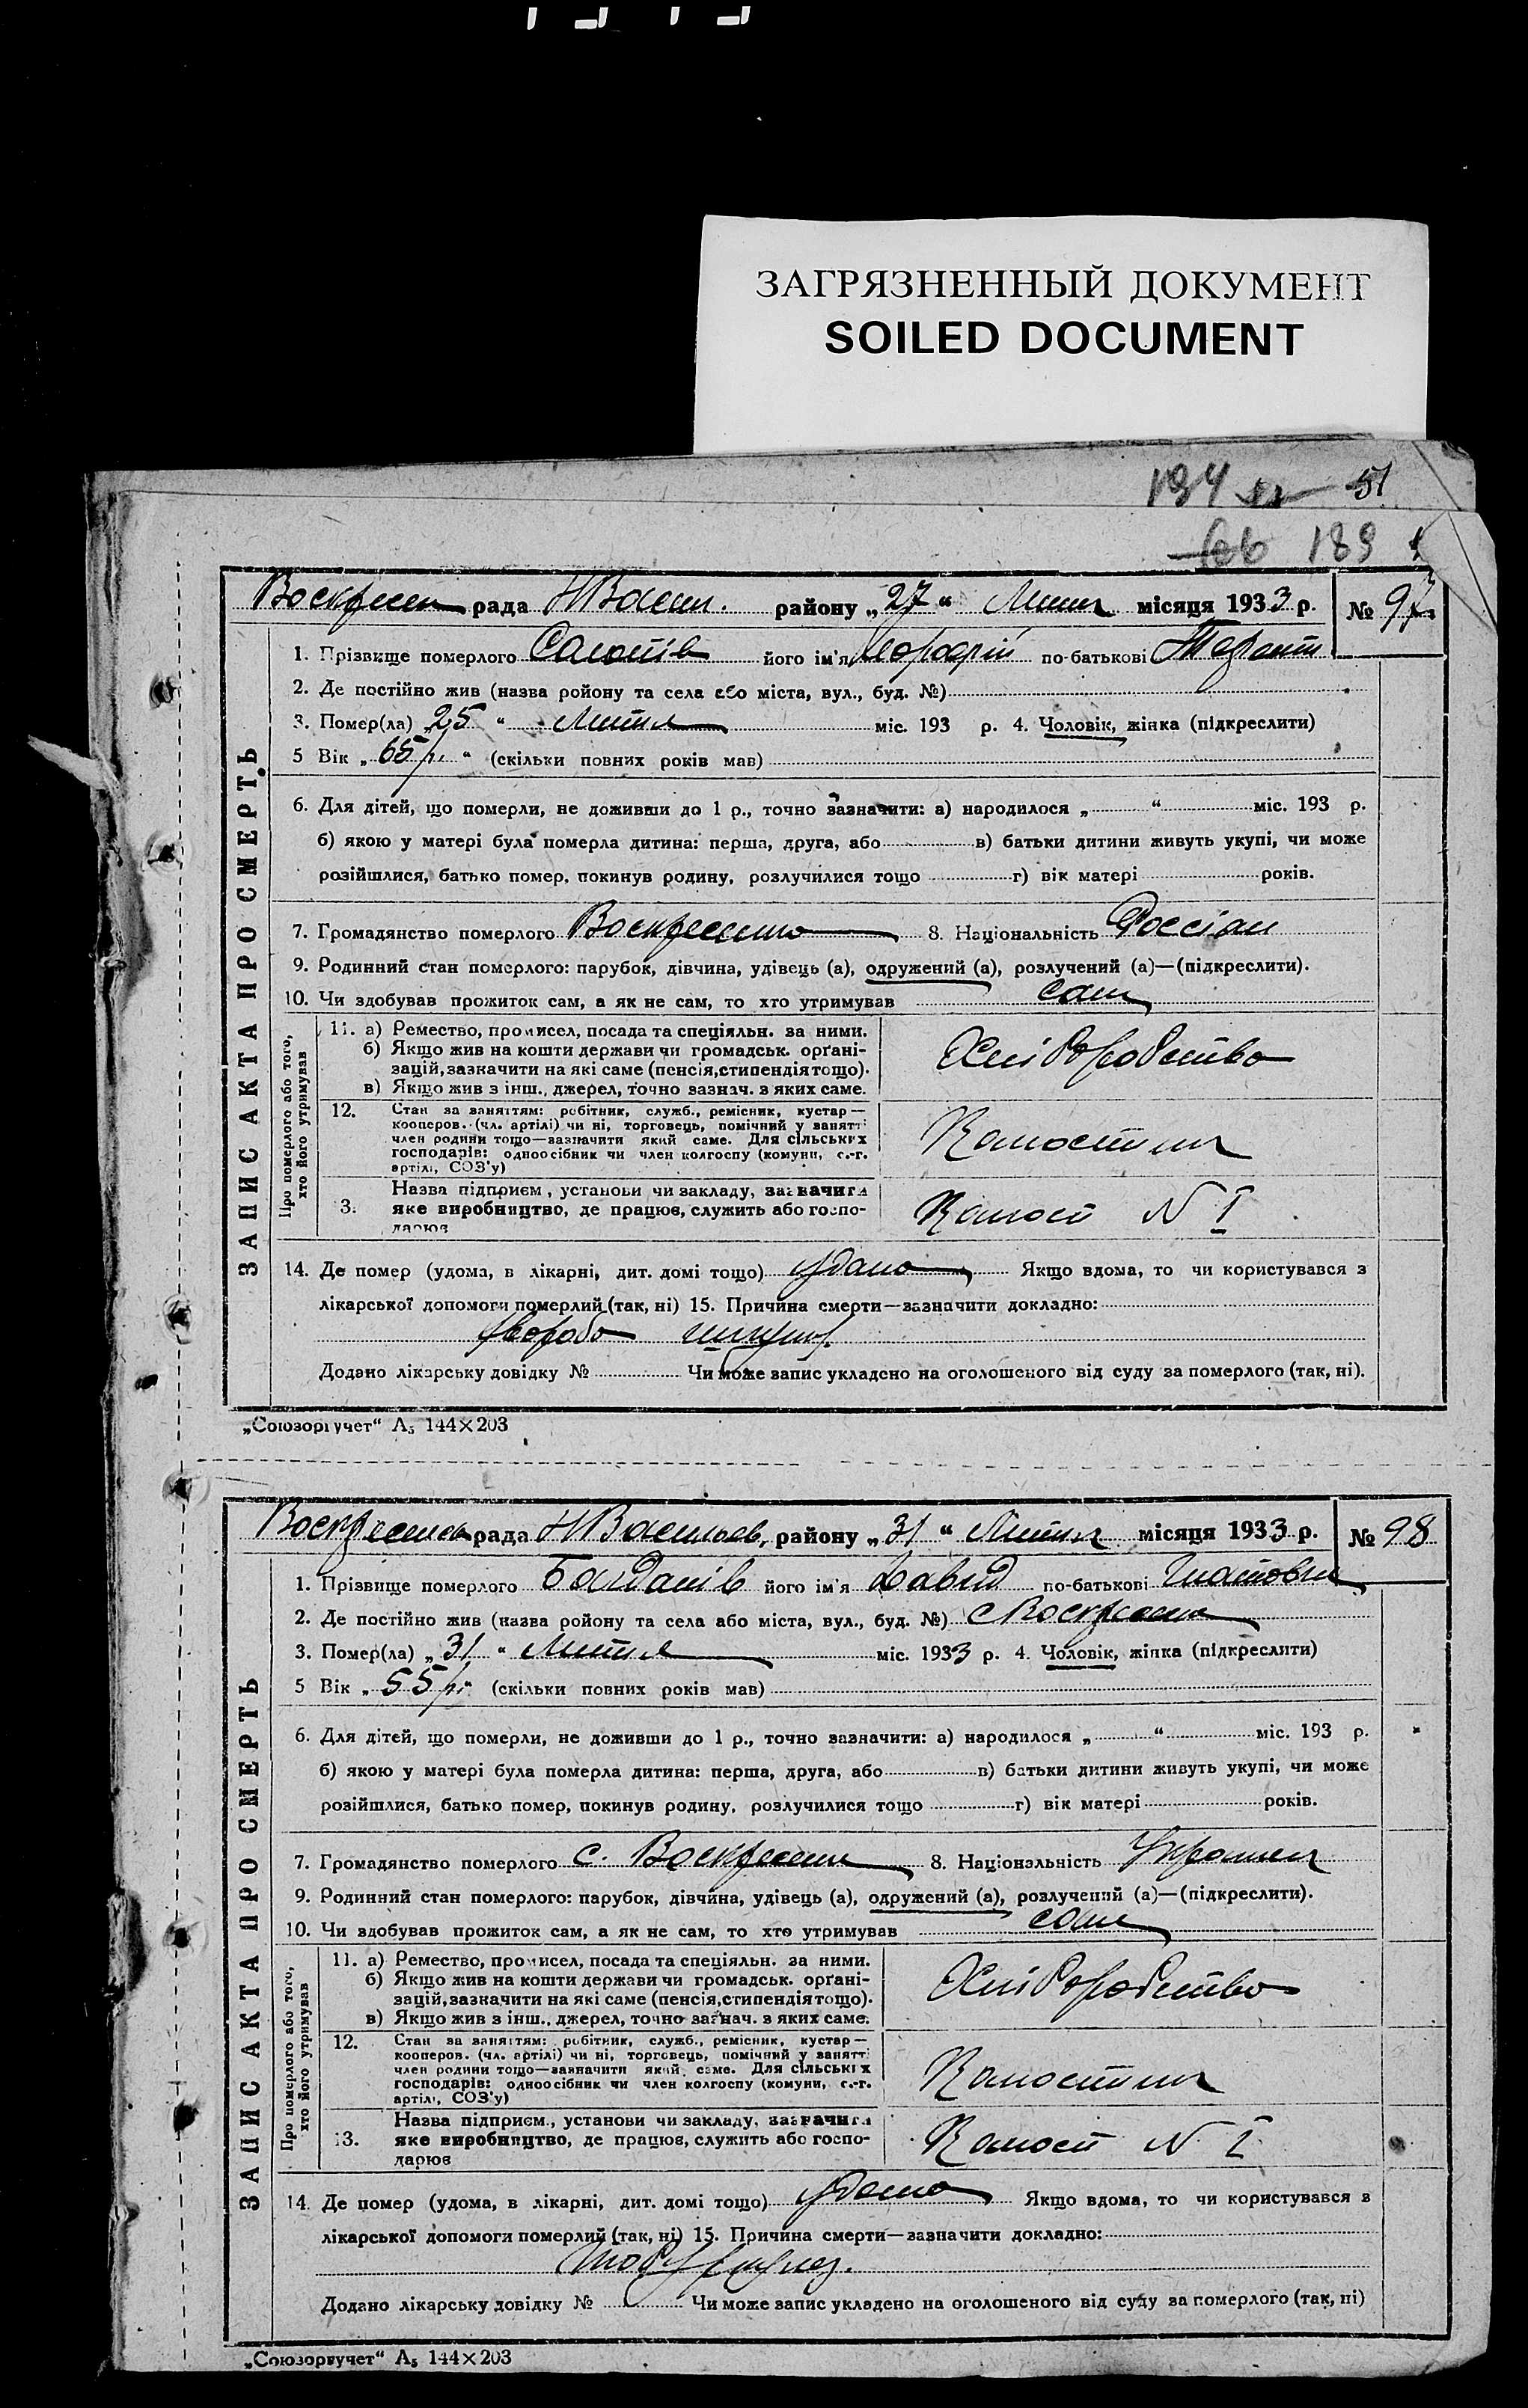 ЗАГРЯЗНЕННЫЙ ДОКУМЕНТ
SOILED DOCUMENT
194 51
189
рада НВасил. району „27“ Липня місяця 1933 р. № 97
ЗАПИС АКТА ПРО СМЕРТЬ
1. Прізвище померлого його ім'я по-батькові
2. Де постійно жив (назва ройону та села або міста, вул., буд. №)
3. Помер(ла) „25“ Липня міс. 193 р. 4. Чоловік, жінка (підкреслити)
5 Вік „65 р.“ (скільки повних років мав)
6. Для дітей, що померли, не доживши до 1 р., точно зазначити: а) народилося „ “ міс. 193 р.
б) якою у матері була померла дитина: перша, друга, або в) батьки дитини живуть укупі, чи може
розійшлися, батько помер, покинув родину, розлучилися тощо г) вік матері років.
7. Громадянство померлого 8. Національність Россіян
9. Родинний стан померлого: парубок, дівчина, удівець (а), одружений (а), розлучений (а)—(підкреслити).
10. Чи здобував прожиток сам, а як не сам, то хто утримував сам
Про померлого або того, хто його утримував
11. а) Ремество, промисел, посада та спеціяльн. за ними.
б) Якщо жив на кошти держави чи громадськ. органі-
зацій, зазначити на які саме (пенсія, стипендія тощо).
в) Якщо жив з інш., джерел, точно зазнач. з яких саме.
Хліборобство
12. Стан за заняттям: робітник, служб., ремісник, кустар—
кооперов. (чл. артілі) чи ні, торговець, помічний у занятті
член родини тощо—зазначити який саме. Для сільських
господарів: одноосібник чи член колгоспу (комуни, с.-г.
артілі, СОЗ'у)
3. Назва підприєм., установи чи закладу, зазначити
яке виробництво, де працює, служить або госпо-
дарює
N I
14. Де помер (удома, в лікарні, дит. домі тощо) удома Якщо вдома, то чи користувався з
лікарської допомоги померлий (так, ні) 15. Причина смерти—зазначити докладно:
Додано лікарську довідку № Чи може запис укладено на оголошеного від суду за померлого (так, ні).
„Союзоргучет“ А₅ 144×203
рада НВасильев. району „31“ Липня місяця 1933 р. № 98
ЗАПИС АКТА ПРО СМЕРТЬ
1. Прізвище померлого Багданів його ім'я Давид по-батькові
2. Де постійно жив (назва ройону та села або міста, вул., буд. №)
3. Помер(ла) „31“ Липня міс. 1933 р. 4. Чоловік, жінка (підкреслити)
5 Вік „55 р. (скільки повних років мав)
6. Для дітей, що померли, не доживши до 1 р., точно зазначити: а) народилося „ “ міс. 193 р.
б) якою у матері була померла дитина: перша, друга, або в) батьки дитини живуть укупі, чи може
розійшлися, батько помер, покинув родину, розлучилися тощо г) вік матері років.
7. Громадянство померлого с. 8. Національність
9. Родинний стан померлого: парубок, дівчина, удівець (а), одружений (а), розлучений (а)—(підкреслити).
10. Чи здобував прожиток сам, а як не сам, то хто утримував сам
Про померлого або того, хто його утримував
11. а) Ремество, промисел, посада та спеціяльн. за ними.
б) Якщо жив на кошти держави чи громадськ. органі-
зацій, зазначити на які саме (пенсія, стипендія тощо).
в) Якщо жив з інш., джерел, точно зазнач. з яких саме.
Хліборобство
12. Стан за заняттям: робітник, служб., ремісник, кустар—
кооперов. (чл. артілі) чи ні, торговець, помічний у занятті
член родини тощо—зазначити який саме. Для сільських
господарів: одноосібник чи член колгоспу (комуни, с.-г.
артілі, СОЗ'у)
13. Назва підприєм., установи чи закладу, зазначити
яке виробництво, де працює, служить або госпо-
дарює
N I
14. Де помер (удома, в лікарні, дит. домі тощо) удома Якщо вдома, то чи користувався з
лікарської допомоги померлий (так, ні) 15. Причина смерти—зазначити докладно:
Додано лікарську довідку № Чи може запис укладено на оголошеного від суду за померлого (так, ні)
„Союзоргучет“ А₅ 144×203